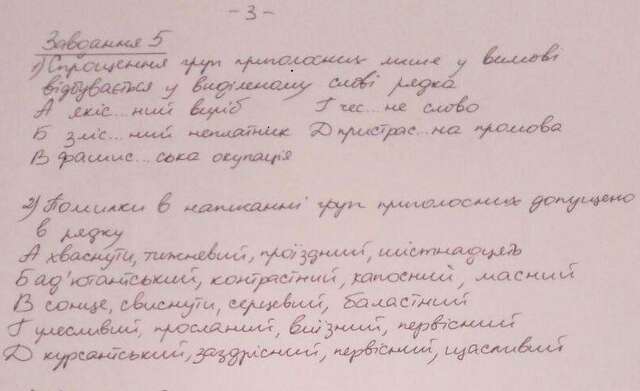 - 3 -
Завдання 5
1) Спрощення груп приголосних лише у вимові
відбувається у виділеному слові рядка
А якіс...ний виріб Г чес...не слово
Б зліс...ний неплатник Д пристрас...на промова
В фашис...ська окупація
2) Помилки в написанні груп приголосних допущено
в рядку
А хваснути, тижневий, проїздний, шістнадцять
Б ад'ютантський, контрастний, капосний, масний
В сонце, свиснути, серцевий, баластний
Г улесливий, просланий, виїзний, первісний
Д курсантський, заздрісний, первісний, щасливий